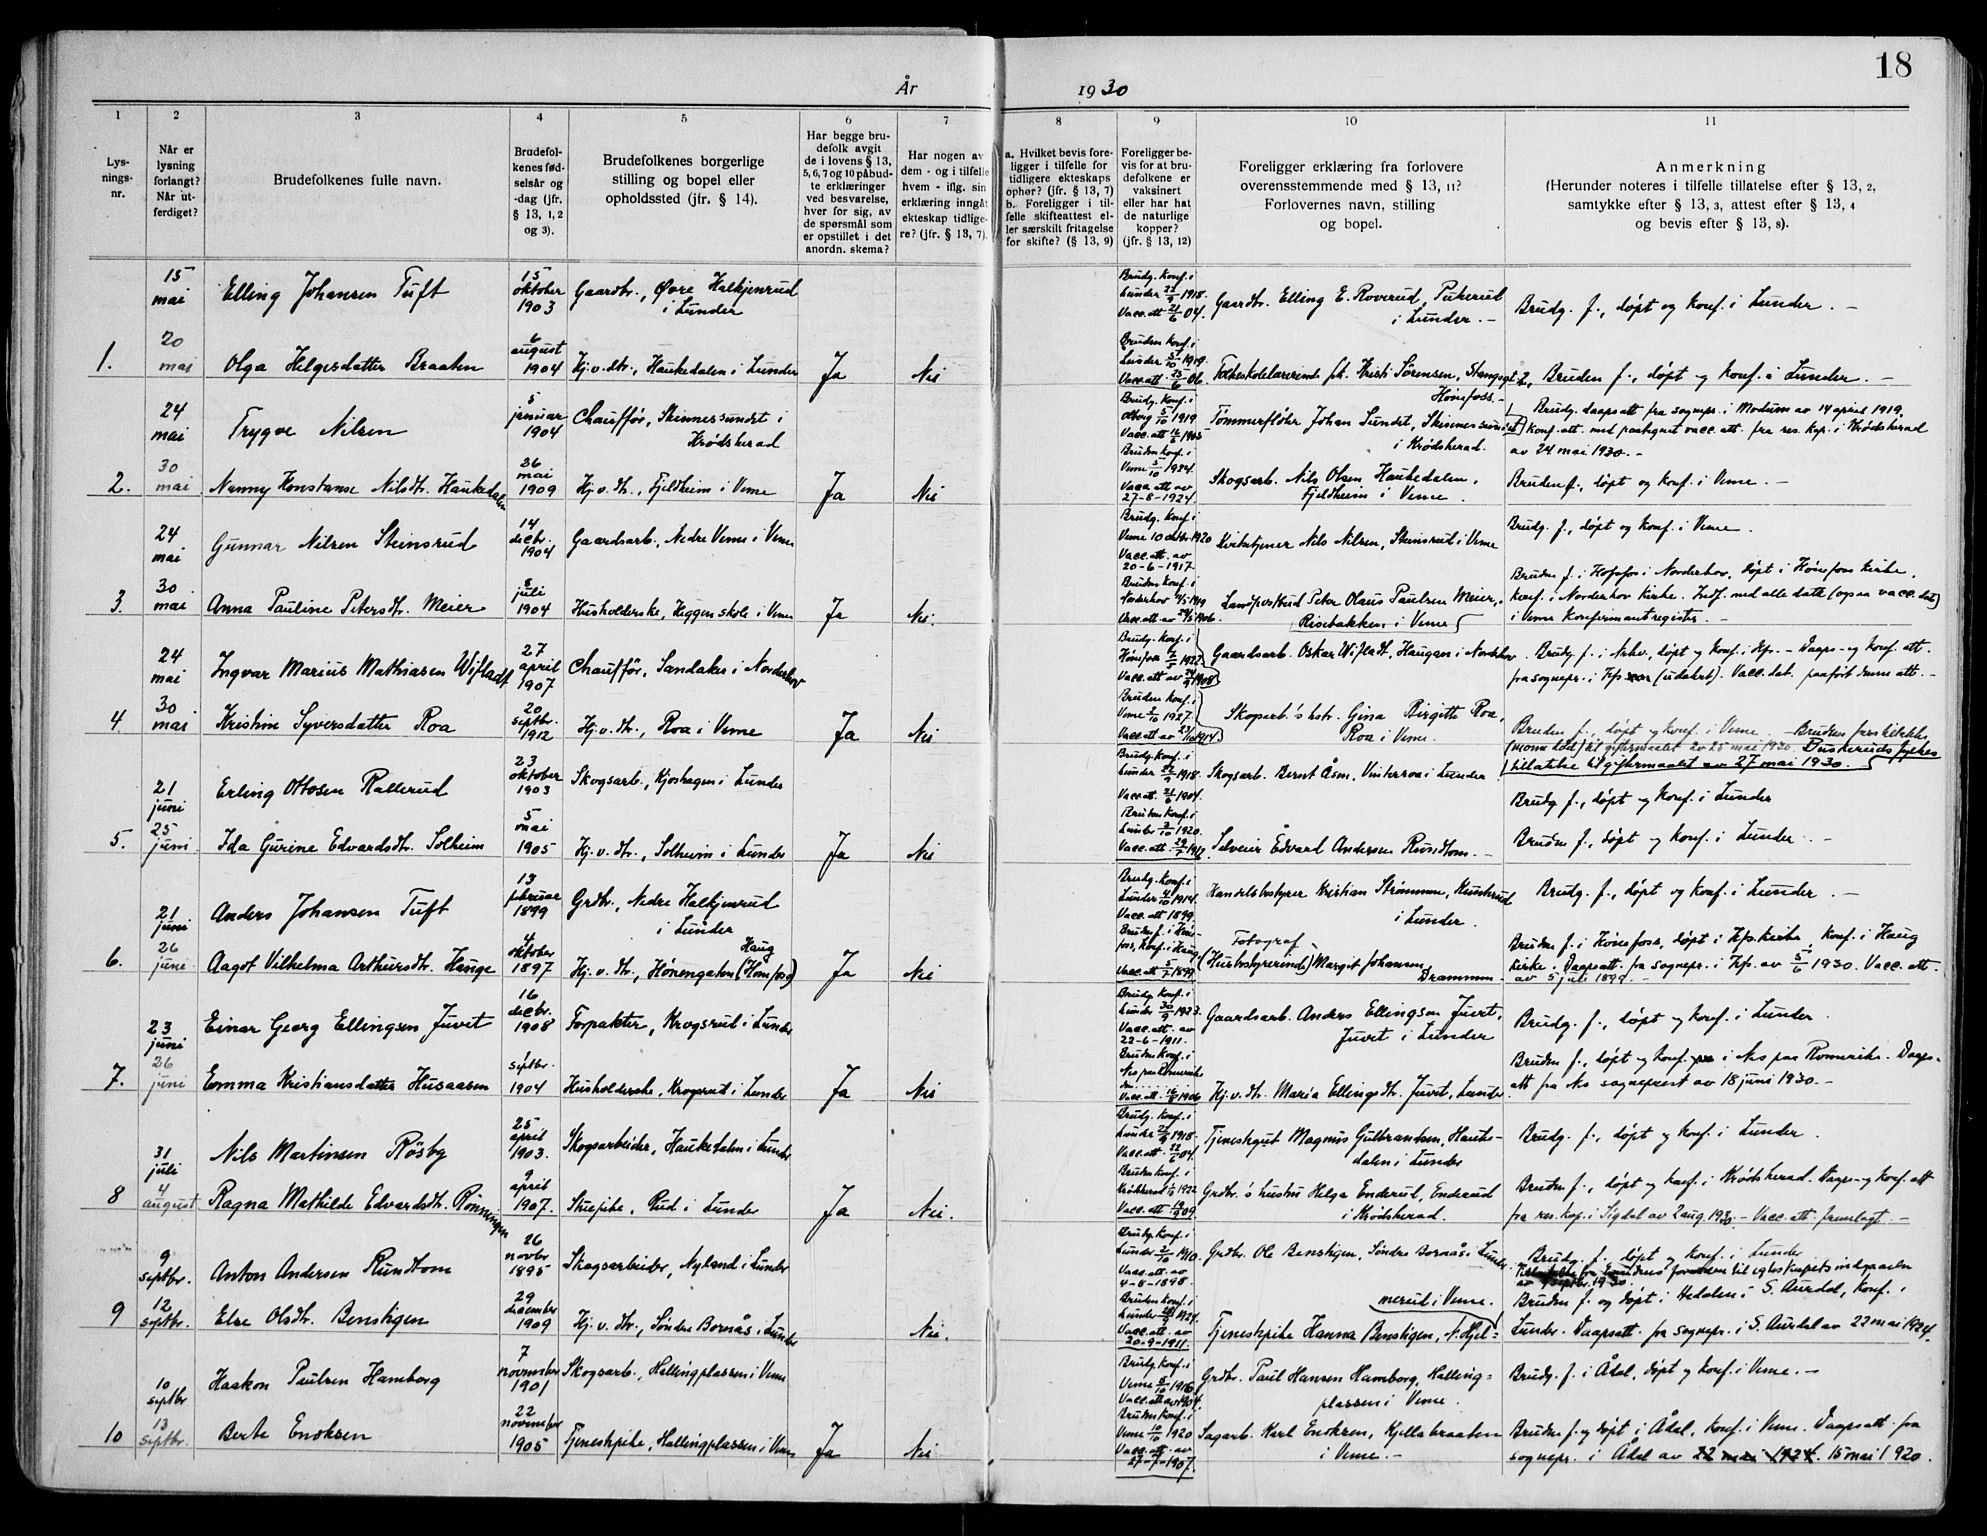 18
År 1930
1
2
3
4
5
6
7
8
9
10
11
Lys-
nings-
nr.
Når er
lysning
forlangt?
Når ut-
ferdiget?
Brudefolkenes fulle navn.
Brudefol-
kenes fød-
selsår og
-dag (jfr.
§ 13, 1, 2
og 3).
Brudefolkenes borgerlige
stilling og bopel eller
opholdssted (jfr. § 14).
Har begge bru-
defolk avgit
de i lovens § 13,
5, 6, 7 og 10 påbud-
te erklæringer
ved besvarelse,
hver for sig, av
de spørsmål som
er opstillet i det
anordn. skema?
Har nogen av
dem - og i tilfelle
hvem - iflg. sin
erklæring inngåt
ekteskap tidlige-
re? (jfr. § 13, 7).
a. Hvilket bevis fore-
ligger i tilfelle for
tidligere ekteskaps
ophør? (jfr. § 13, 7)
b. Foreligger i til-
felle skifteattest el-
ler særskilt fritagelse
for skifte? (§ 13, 9)
Foreligger be-
vis for at bru-
defolkene er
vaksinert
eller har hat
de naturlige
kopper?
(jfr. § 13, 12)
Foreligger erklæring fra forlovere
overensstemmende med § 13, 11?
Forlovernes navn, stilling
og bopel.
Anmerkning
(Herunder noteres i tilfelle tillatelse efter § 13, 2,
samtykke efter § 13, 3, attest efter § 13, 4
og bevis efter § 13, 8).
15 mai
Elling Johansen Tuft
15 oktober 1903
Gaardbr., Øvre Halkjenrud
i Lunder
Brudg. konf. i
Lunder 22/9 1918.
Vacc. att 21/6 04.
Gaardbr. Elling E. Roverud, Pukerud
i Lunder. -
Brudg. f., døpt og konf. i Lunder. -
1.
20 mai
Olga Helgesdatter Braaten
6 august 1904
Hj. v. dtr., Haukedalen i Lunder
Ja
Nei
Bruden konf. i
Lunder 5/10 1919.
Vacc. att 25/6 06
Folkeskolelærerinde frk. Kristi Sørensen, Stangsgt 2,
Hønefoss. -
Bruden f., døpt og konf. i Lunder. -
24 mai
Trygve Nilsen
5 januar 1904
Chauffør, Skinnessundet i
Krødsherad
Brudg. konf. i
Olberg 5/10 1919
Tømmerfløter Johan Sundet, Skinnessundet
i Krødsherad.
Brudg. daapsatt fra sognepr. i Modum av 14 april 1919,
konf. att. med paategnet vacc. att. fra res. kap. i Krødsherad
av 24 mai 1930. -
2.
30 mai
Nanny Konstanse Nilsdtr. Haukedalen
26 mai 1909
Hj. v. dtr., Fjeldheim i Veme
Ja
Nei
Bruden konf. i
Veme 5/10 1924.
Vacc. att av
27-8-1924.
Skogsarb. Nils Olsen Haukedalen,
Fjeldheim i Veme.
Bruden f., døpt og konf. i Veme. -
24 mai
Gunnar Nilsen Steinsrud
14 decbr. 1904
Gaardsarb., Nedre Veme i Veme
Brudg. konf. i
Veme 10 oktbr. 1920
Vacc. att. av
20-6-1917.
Kirketjener Nils Nilsen, Steinsrud i Veme
Brudg. f., døpt og konf. i Veme.
3.
30 mai
Anna Pauline Petersdtr. Meier
8 juli 1904
Husholderske, Heggen skole i Veme
Ja
Nei.
Bruden konf. i
Landpostbud Peter Olaus Paulsen Meier,
Risebakken i Veme
Bruden f. i Hofsfos i Norderhov, døpt i Hønefoss kirke,
konf. i Norderhov kirke. Indf. med alle data (ogsaa vacc. dat)
i Veme konfirmantregister. -
24 mai
Ingvar Marius Mathiasen Wifladt
27 april 1907
Chauffør, Sandaker i Norderhov
Brudg. konf. i
Gaardsarb. Oskar Wifladt, Haugan i Norderhov
Brudg f. i Nrhv., døpt og konf. i Hfs. - Daaps- og konf. att.
fra sognepr. i Hfs (udatert). Vacc. dat. paaført denne att. -
4
30 mai
Kristine Syversdatter Roa
20 septbr. 1912
Hj. v. dtr., Roa i Veme
Ja
Nei
Bruden konf. i
Veme 2/10 1927.
Skogsarb's hstr. Gina Birgitte Roa,
Roa i Veme.
Bruden f., døpt og konf. i Veme. - Brudens
til giftermaalet av 25 mai 1930. Buskeruds fylkes
tillatelse til giftermaalet av 27 mai 1930.
21 juni
Erling Ottosen Rallerud
23 oktober 1903
Skogsarb., Kjoshagen i Lunder
Brudg. konf. i
Lunder 22/9 1918.
Vacc. att. 21/6 1904.
Skogsarb. Bernt Åsen, Vinterroa i Lunder
Brudg f., døpt og konf. i Lunder
5.
25 juni
Ida Gurine Edvardsdtr. Solheim
5 mai 1905
Hj. v. dtr., Solheim i Lunder
Ja
Nei
Bruden konf. i
Lunder 3/10 1920.
Selveier Edvard Andersen Rundtom. -
Bruden f., døpt og konf. i Lunder. -
21 juni
Anders Johansen Tuft
13 februar 1899
Grdbr., Nedre Halkjenrud
i Lunder
Brudg. konf. i
Lunder 4/10 1914.
Vacc. att 1899.
Handelsbestyrer Kristian Strømmen,
i Lunder.
Brudg. f., døpt og konf. i Lunder. -
6.
26 juni
Aagot Vilhelma Arthursdtr. Hauge
4 oktober 1897
Hj. v. dtr., Hønengaten (Hønefoss) Haug
Ja
Nei
Bruden f. i Høne-
foss, konf. i Haug
Vacc. att. 5/7 1899
Fotograf
(Husbestyrerinde) Margit Johansen,
Drammen. -
Bruden f. i Hønefoss, døpt i Hfs. kirke, konf. i Haug
kirke. Daapsatt. fra sognepr. i Hfs. av 5/6 1930. Vacc. att.
av 5 juli 1899. -
23 juni
Einar Georg Ellingsen Juvet
16 decbr. 1908
Forpakter, Krogsrud i Lunder
Brudg. konf. i
Lunder 30/9 1923.
Vacc. att. av
22-6-1911.
Gaardsarb. Anders Ellingsen Juvet,
Juvet i Lunder
Brudg. f., døpt og konf. i Lunder.
7.
26 juni
Emma Kristiansdatter Husaasen
septbr. 1904
Husholderske, Krogsrud i Lunder
Ja
Nei
Bruden konf. i
Nes paa Romerike
Hj. v. dtr. Maria Ellingsdtr. Juvet, Lunder
Bruden f., døpt og konf. i Nes paa Romerike. Daaps-
att fra Nes sogneprest av 18 juni 1930. -
31 juli
Nils Martinsen Røsby
25 april 1903.
Skogsarbeider, Haukedalen i Lunder
Brudg. konf. i
Tjenestegut Magnus Gulbrandsen, Hauke-
dalen i Lunder
Brudg. f., døpt og konf. i Lunder.
8
4 august
Ragna Mathilde Edvardsdtr. Rønningen
9 april 1907.
Stuepike, Rud i Lunder
Ja
Nei.
Bruden konf. i
Grdbr.'s hustru Helga Enderud, Enderud
i Krødsherad.
Bruden f., døpt og konf. i Krødsherad. Daaps- og konf. att
fra res. kap. i Sigdal av 2 aug. 1930. - Vacc. att. fremlagt. -
9 septbr.
Anton Andersen Rundtom
26 novbr 1895
Skogsarbeider, Nyland i Lunder
Brudg. konf. i
Lunder 2/10 1910.
Vacc. att av
4-8-1898.
Grdbr. Ole Benstigen, Søndre Bornås i Lunder
Brudg. f., døpt og konf. i Lunder
9
12 septbr.
Else Olsdtr. Benstigen
29 december 1909
Hj. v. dtr., Søndre Bornås i Lunder
Nei.
Bruden konf. i
Lunder 28/9 1924.
Vacc. att. av
20-9-1911.
Tjenestepike Hanna Benstigen, N. Hjel-
merud i Veme.
Bruden f. og døpt i Hedalen i S. Aurdal, konf. i
Lunder. Daapsatt. fra sognepr. i S. Aurdal av 22 mai 1924.
10 septbr
Haakon Paulsen Hamborg
7 november 1901
Skogsarb., Hallingplassen i Veme
Brudg. konf. i
Veme 5/10 1916
Vacc. att av 1904.
Grdbr. Paul Hansen Hamborg, Halling-
plassen i Veme.
Brudg. f. i Ådal, døpt og konf. i Veme. -
10
13 septbr.
Berte Enoksen
22 november 1905
Tjenestepike, Hallingplassen i Veme
Ja
Nei
Bruden konf. i
Veme 10/10 1920
Vacc. att. av
27-7-1907.
Sagarb. Karl Enoksen, Kjellabraaten
i Veme. -
Bruden f. og døpt i Ådal, konf. i Veme. Daapsatt. fra
sognepr. i Ådal av 22 mai 1924. 15 mai 1920.